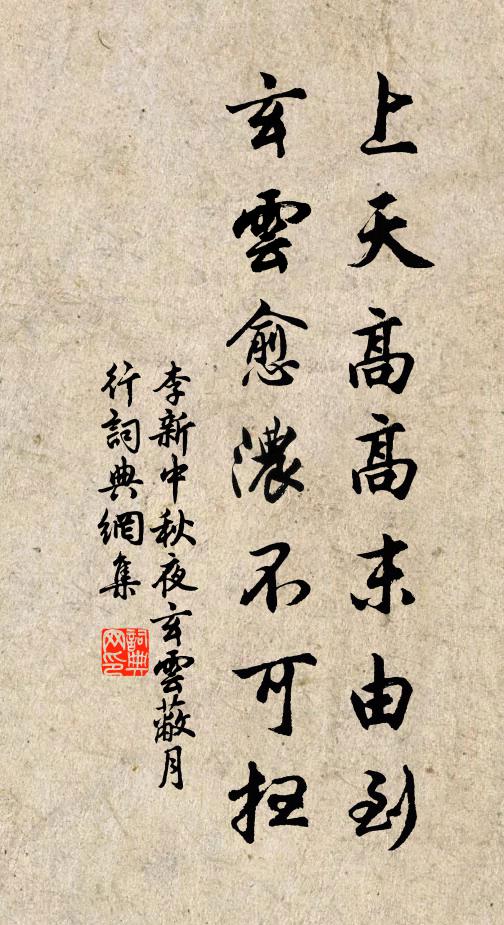 上天高高末由到
玄雲愈濃不可抂
李新中秋夜玄雲蔽月
行詞典網集
詞典网印